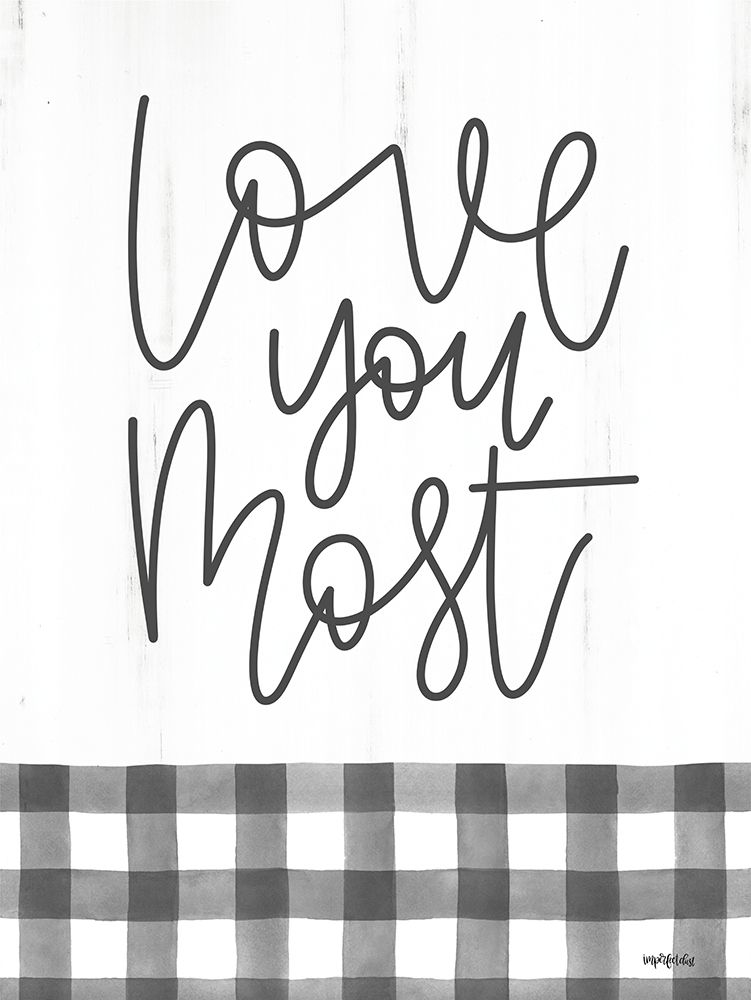 love
you
most
imperfect dust